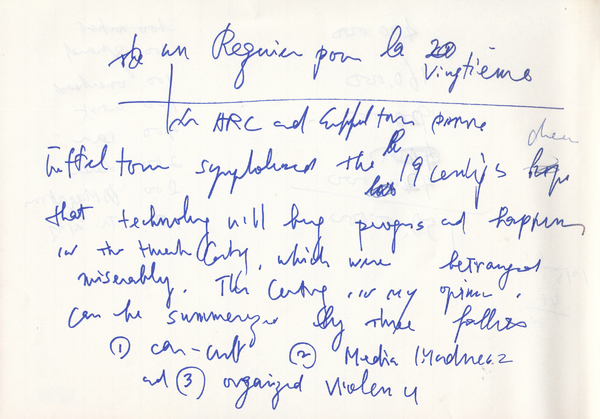 un Requiem pour la
Vingtième
ARC and
Eiffel tour symbolused the 19 century's dream
that technology will bring progress and happiness
in the Century, which were betrayed
miserably. This Century in my opinion
can be summerized by three
① car-cult ② Media Madness
and ③ organized violency